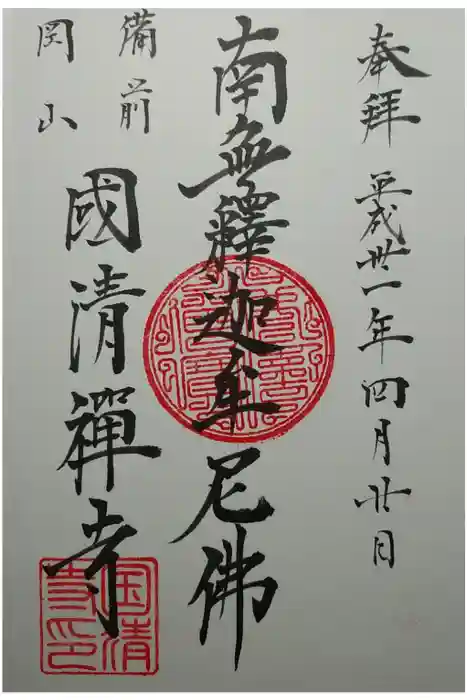 奉拝 平成卅一年四月廿日
南無釋迦牟尼佛
備前
岡山
國清禪寺
国清
寺印